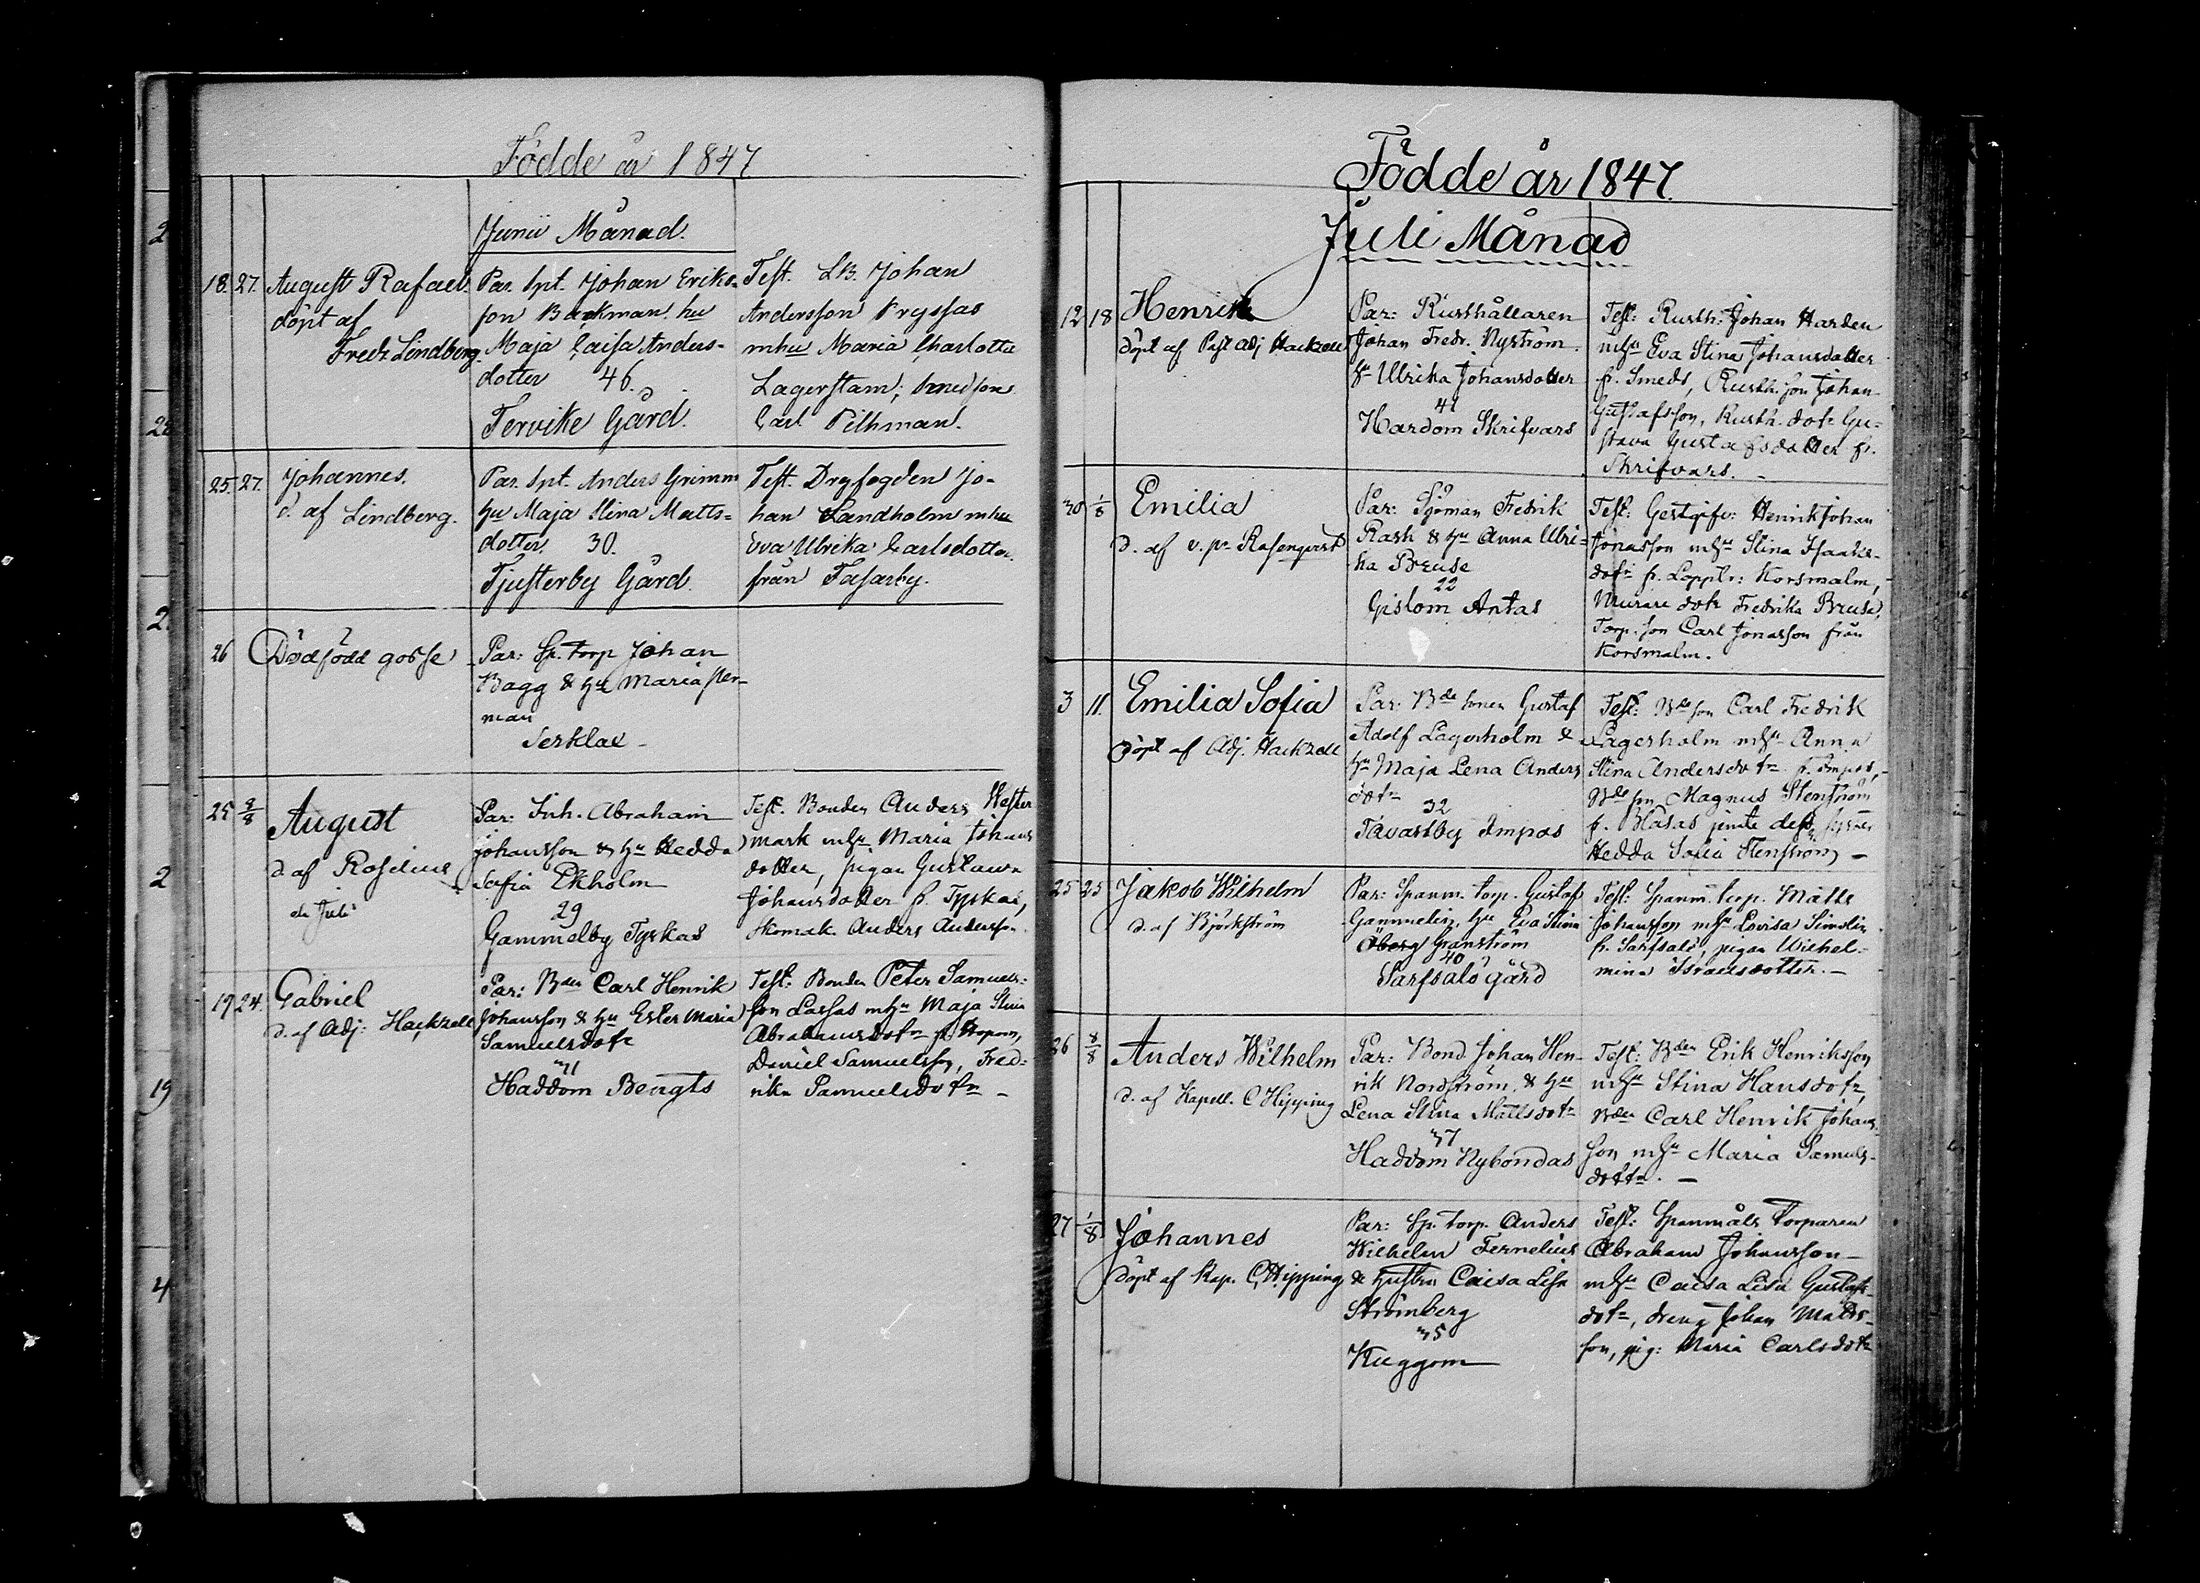 Födde år 1847
Junii Månad.
18. 27. August Rafael.
döpt af
Fredr Lindberg.
Par. Spt. Johan Eriks-
son Backman hu
Maja Caisa Anders-
dotter 46.
Tervike Gård.
Test. LB. Johan
Andersson Pryssas
mhu Maria Charlotta
Lagerstam;
Carl Pilhman.
25. 27. Johannes.
d. af Lindberg.
Par. Spt. Anders Grimm
hu Maja Stina Matts-
dotter. 30.
Tjusterby Gård.
Test. Drgfogden Jo-
han Sandholm mhu
Eva Ulrika Carlsdotter
från Fasarby.
26 Dödfödd gosse
Par: Sp. torp Johan
Bagg & hu Maria
man
Serklax -
25 2/8 August
d. af Roselius
Par: Inh. Abraham
Johansson & hu Hedda
Sofia Ekholm
29
Gammelby Tyskas
Test. Bonden Anders Wester
mark mhu Maria Johans
dotter, pigan Gustava
Johansdotter fr. Tyskas,
Skomak. Anders Andersson.
19 24. Gabriel
d. af Adj: Hackzell
Par: Bden Carl Henrik
Johansson & hu Ester Maria
Samuelsdotr
41
Haddom Bengts
Test: Bonden Peter Samuels-
son Lassas mhu Maja Stina
Abrahamsdotr
Daniel Samuelsson, Fred-
rika Samuelsdotr -
Födde år 1847.
Juli Månad
12 18 Henrik
döpt af Past adj Hackzell
Par: Rusthållaren
Johan Fredr. Nyström
hu Ulrika Johansdotter
41
Hardom Skrifvars
Test: Rusth: Johan Harden
mhu Eva Stina Johansdotter
fr. Smeds, Rusth. son Johan
Gustafsson, Rusth. dotr Gu-
stava Gustafsdotter fr.
Skrifvars. -
30 1/8 Emilia
d. af v. pr Rosenqvist
Par: Sjöman Fredrik
Rask & hu Anna Ulri-
ka Breuse
22
Gislom Antas
Test: Gestgifv: Henrik Johan
Jonasson mhu Stina Isaaks-
dotr fr. Lopptr: Korsmalm,
Murare dotr Fredrika Breuse,
Torp. son Carl Jonasson från
Korsmalm.
3 11. Emilia Sofia
Döpt af Adj. Hackzell
Par: Bde sonen Gustaf
Adolf Lagerholm &
hu Maja Lena Anders
dotr
32
Tavastby Impos
Test: Bde son Carl Fredrik
Lagerholm mhu Anna
Stina Andersdotr fr. Impos,
Bde son Magnus Stenström
fr. Blasas jemte dess syster
Hedda Sofia Stenström -
25 25 Jakob Wilhelm
d. af Björkström
Par: Spanm. torp. Gustaf
Gammelin, hu Eva Stina
Öberg Granström
40
Sarfsalö gård
Test: Spanm. torp. Matts
Johansson mhu Lovisa Simolin
fr. Sarfsalö, pigan Wilhel-
mina Israelsdotter. -
26 8/8 Anders Wilhelm
d. af Kapell. C Hipping
Par: Bond. Johan Hen-
rik Nordström, & hu
Lena Stina Mattsdotr
37
Haddom Nybondas
Test: Bden Erik Henriksson
mhu Stina Hansdotr,
Bden Carl Henrik Johans-
son mhu Maria Samuels-
dottr. -
27 1/8 Johannes
döpt af Kap. C Hipping
Par: Sp. torp. Anders
Wilhelm Fernelius
& hustru Caisa Lisa
Strömberg
35
Kuggom
Test: Spanmåls torparen
Abraham Johansson
mhu Caisa Lisa Gustafs-
dotr, dreng Johan Matts-
son, pig: Maria Carlsdotr